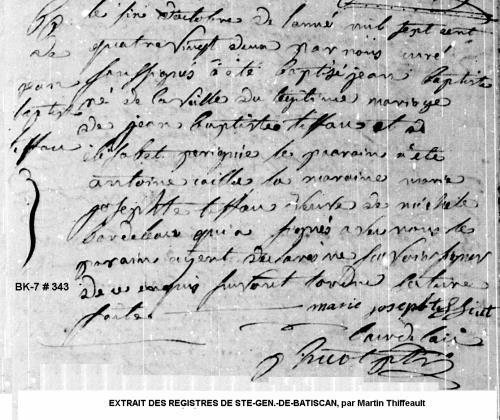 le six d'octobre de l'année mil sept cent
de quatre vingt deux par nous curé
soussigné à été baptisé jean baptiste
né de la veille du legitime mariage
de jean baptiste tiffau et de
perignie le parain à été
antoine caille la maraine marie
josephte tiffau veuve de michele
bordeleau qui a signés avec nous le
parain ayent declaré ne savoir signer
de ce enquis suivant lordce lecture
faite
marie joseph
jean
baptiste
tiffau
BK-7 # 343
EXTRAIT DES REGISTRES DE STE-GEN.-DE-BATISCAN, par Martin Thiffeault